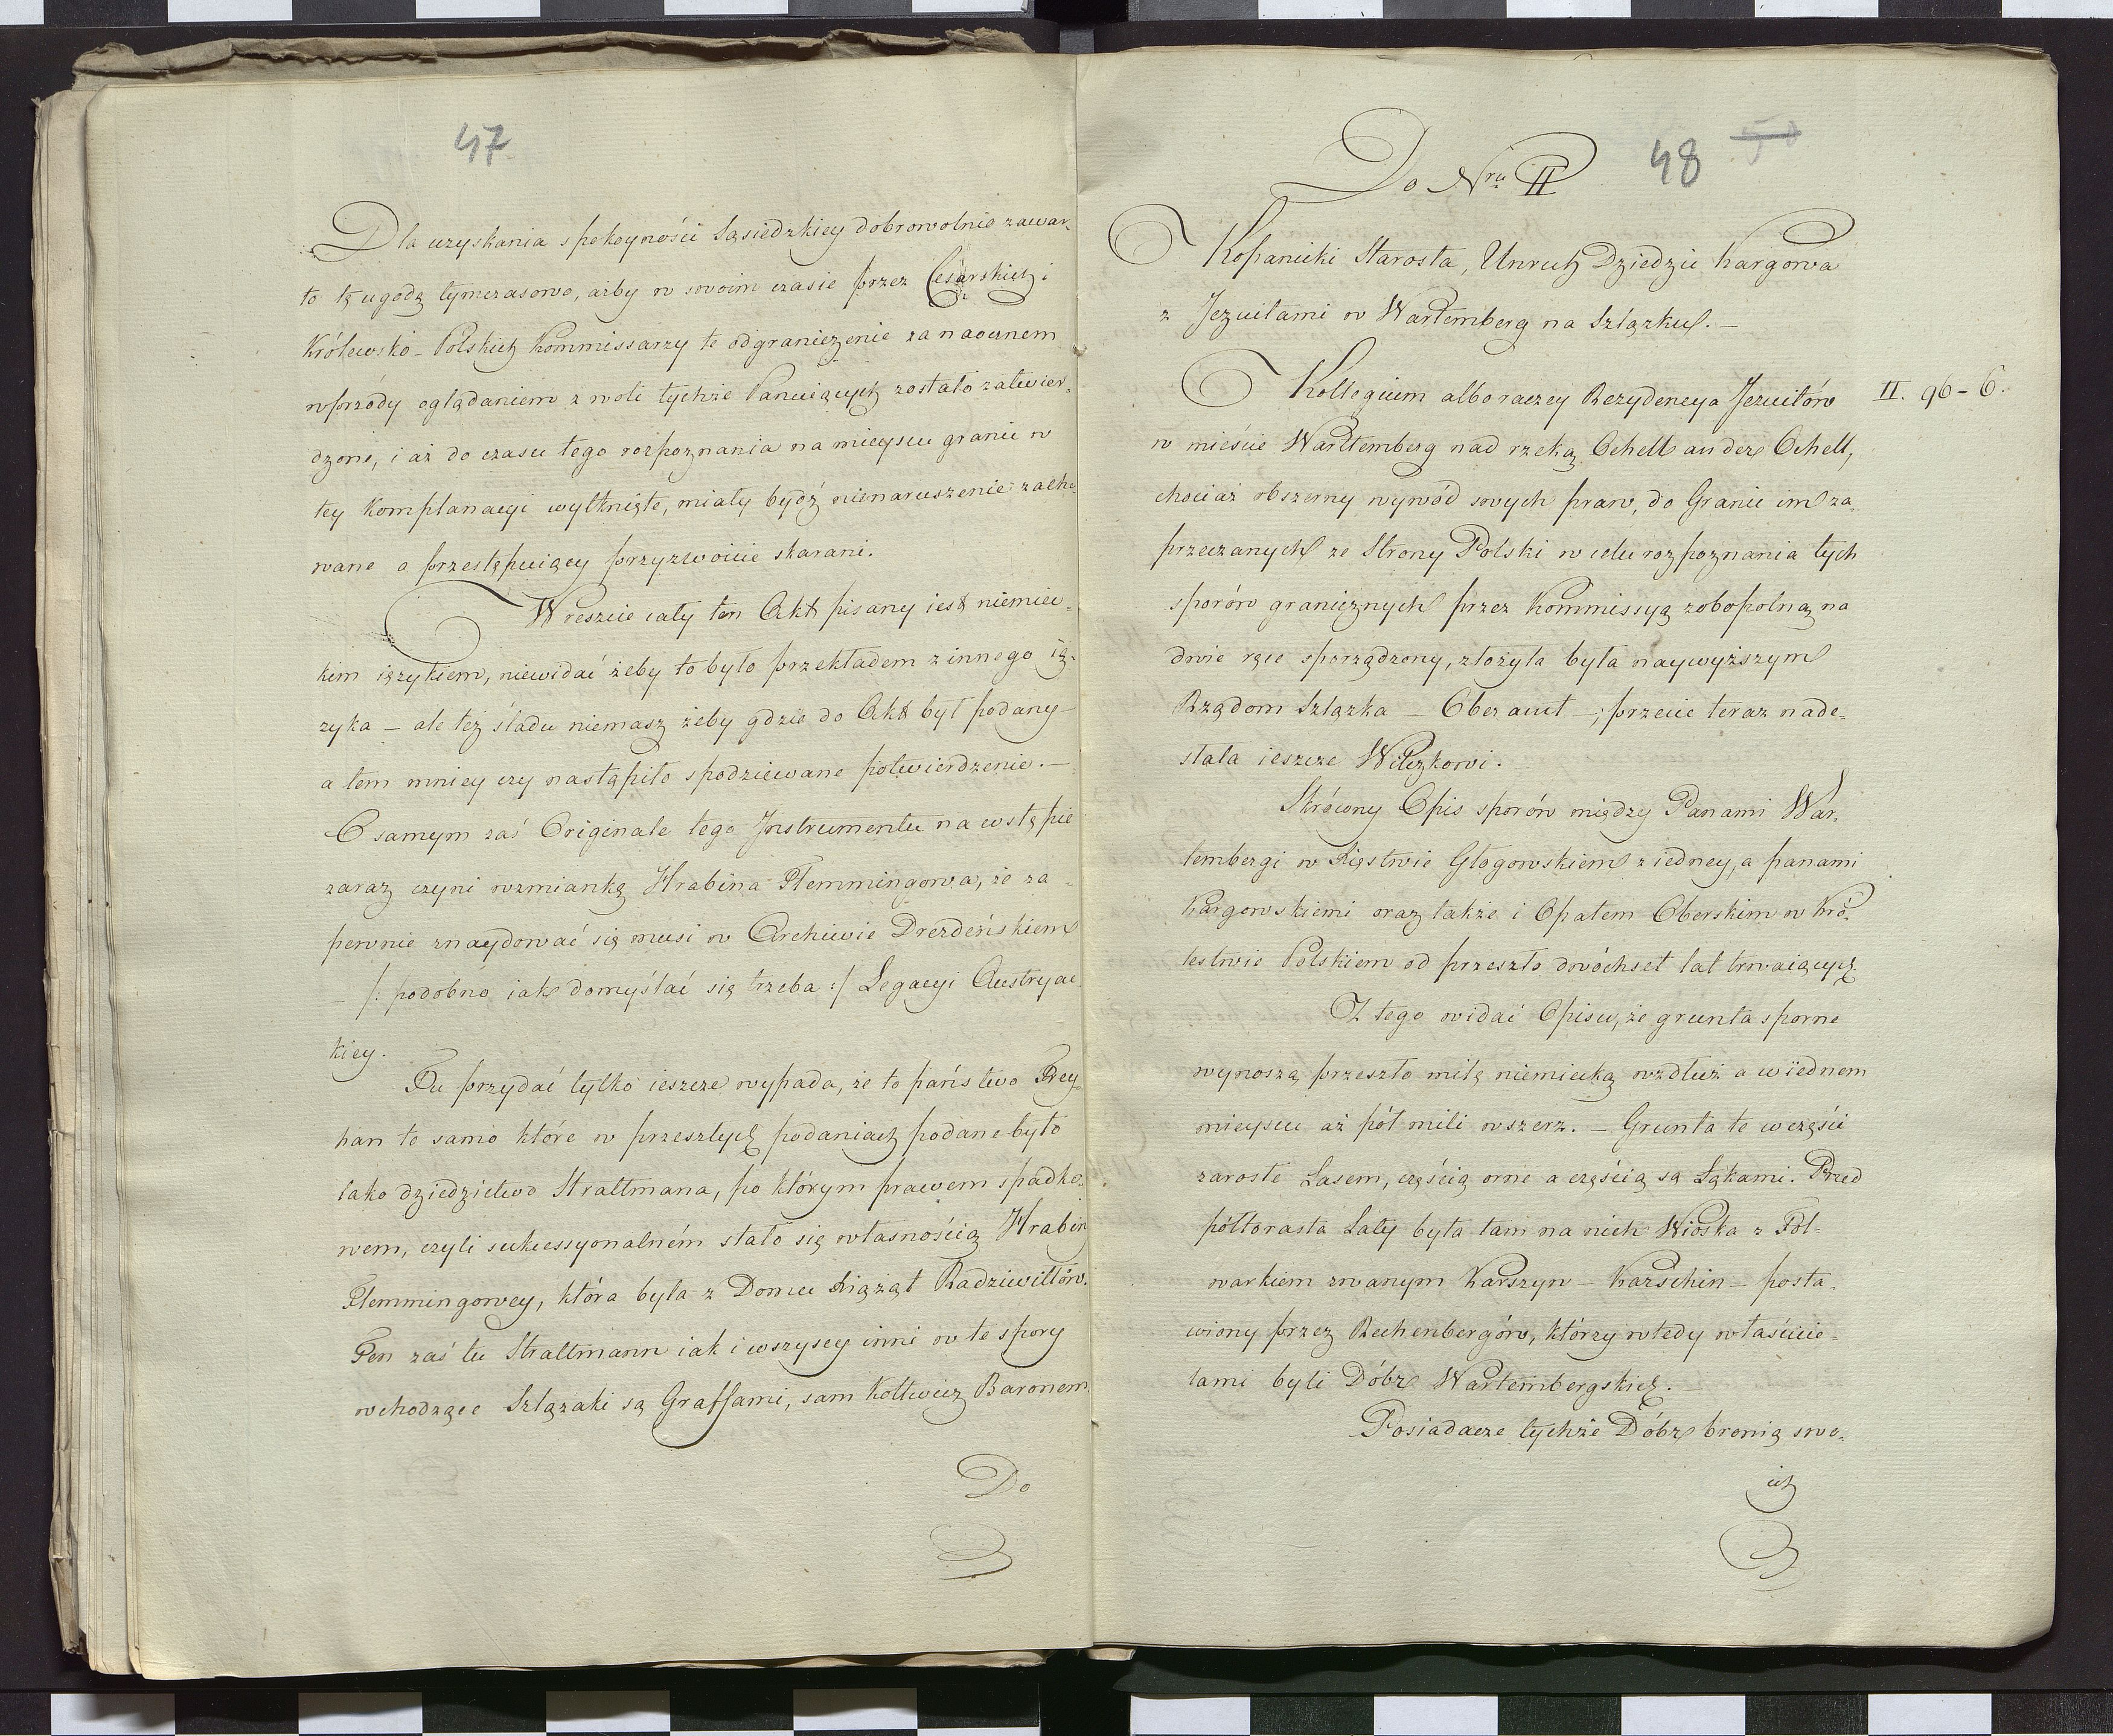 47
Dla uzyskania spokoyności Sąsiedzkiey dobrowolnie zawar-
to tę ugodę tymczasowo, ażby w swoim czasie przez Cesarskich i
Królewsko-Polskich Kommissarzy te odgraniczenie za naocznem
wprzódy oglądaniem z woli tychże Panuiących zostało zatwier-
dzone, i aż do czasu tego rozpoznania na mieyscu granic w
tey Komplanacyi wytknięte, miały bydź nienaruszenie zacho-
wane a przestępuiący przyzwoicie skarani.
Wreszcie cały ten Akt pisany iest niemiec-
kim ięzykiem, niewidać żeby to było przekładem z innego ię-
zyka – ale też śladu niemasz żeby gdzie do Akt był podany –
a tem mniey czy nastąpiło spodziewane potwierdzenie. –
O samym zaś Originale tego Jnstrumentu na wstępie
zaraz czyni wzmiankę Hrabina Flemmingowa, że za-
pewnie znaydować się musi w Archiwie Drezdeńskiem
– /: podobno iak domyślać się trzeba :/ Legacyi Austryac-
kiey.
Tu przydać tylko ieszcze wypada, że to państwo Frey-
han to samo które w przeszłych podaniach podane było
iako dziedzictwo Strattmana, po którym prawem spadko-
wem, czyli sukcessyonalném stało się własnością Hrabin
Flemmingowey, która była z Domu Xiążąt Radziwiłłów.
Ten zaś tu Strattmann iak i wszyscy inni w te spory
wchodzące Szlązaki są Graffami, sam Kottwicz Baronem.
Do
Do Nru II
48 50
Kopanicki Starosta, Unruh Dziedzic Kargowa
z Jezuitami w Wartemberg na Szlązku. –
Kollegium albo raczey Rezydencya Jezuitów
II. 96 - 6.
w mieście Warttemberg nad rzeką Ochell an der Ochell,
chociaż obszerny wywód swych praw, do Granic im za-
przeczanych ze Strony Polski w celu rozpoznania tych
sporów granicznych przez Kommissyą zobopolną na
dwie ręce sporządzony, złożyła była naywyższym
Rządom Szlązka – Oberamt –; przecie teraz nade-
słała ieszcze Wilczkowi.
Skrócony Opis sporów między Panami War-
tembergi w Xięstwie Głogowskiem z iedney, a panami
Kargowskiemi oraz także i Opatem Oberskim w Kró-
lestwie Polskiem od przeszło dwóchset lat trwaiących.
Z tego widać Opisu, że grunta sporne
wynoszą przeszło milę niemiecką wzdłuż a w iednem
mieyscu aż pół mili wszerz. – Grunta te w części
zarosłe Lasem, częścią orne a częścią są Łąkami. Przed
półtorasta Laty była tam na nich Wioska z Fol-
warkiem zwanym Karszyn – Karschin – posta-
wiony przez Rechenbergów, którzy wtedy właścicie-
lami byli Dóbr Wartembergskich.
Posiadacze tychże Dóbr bronią swo-
ich